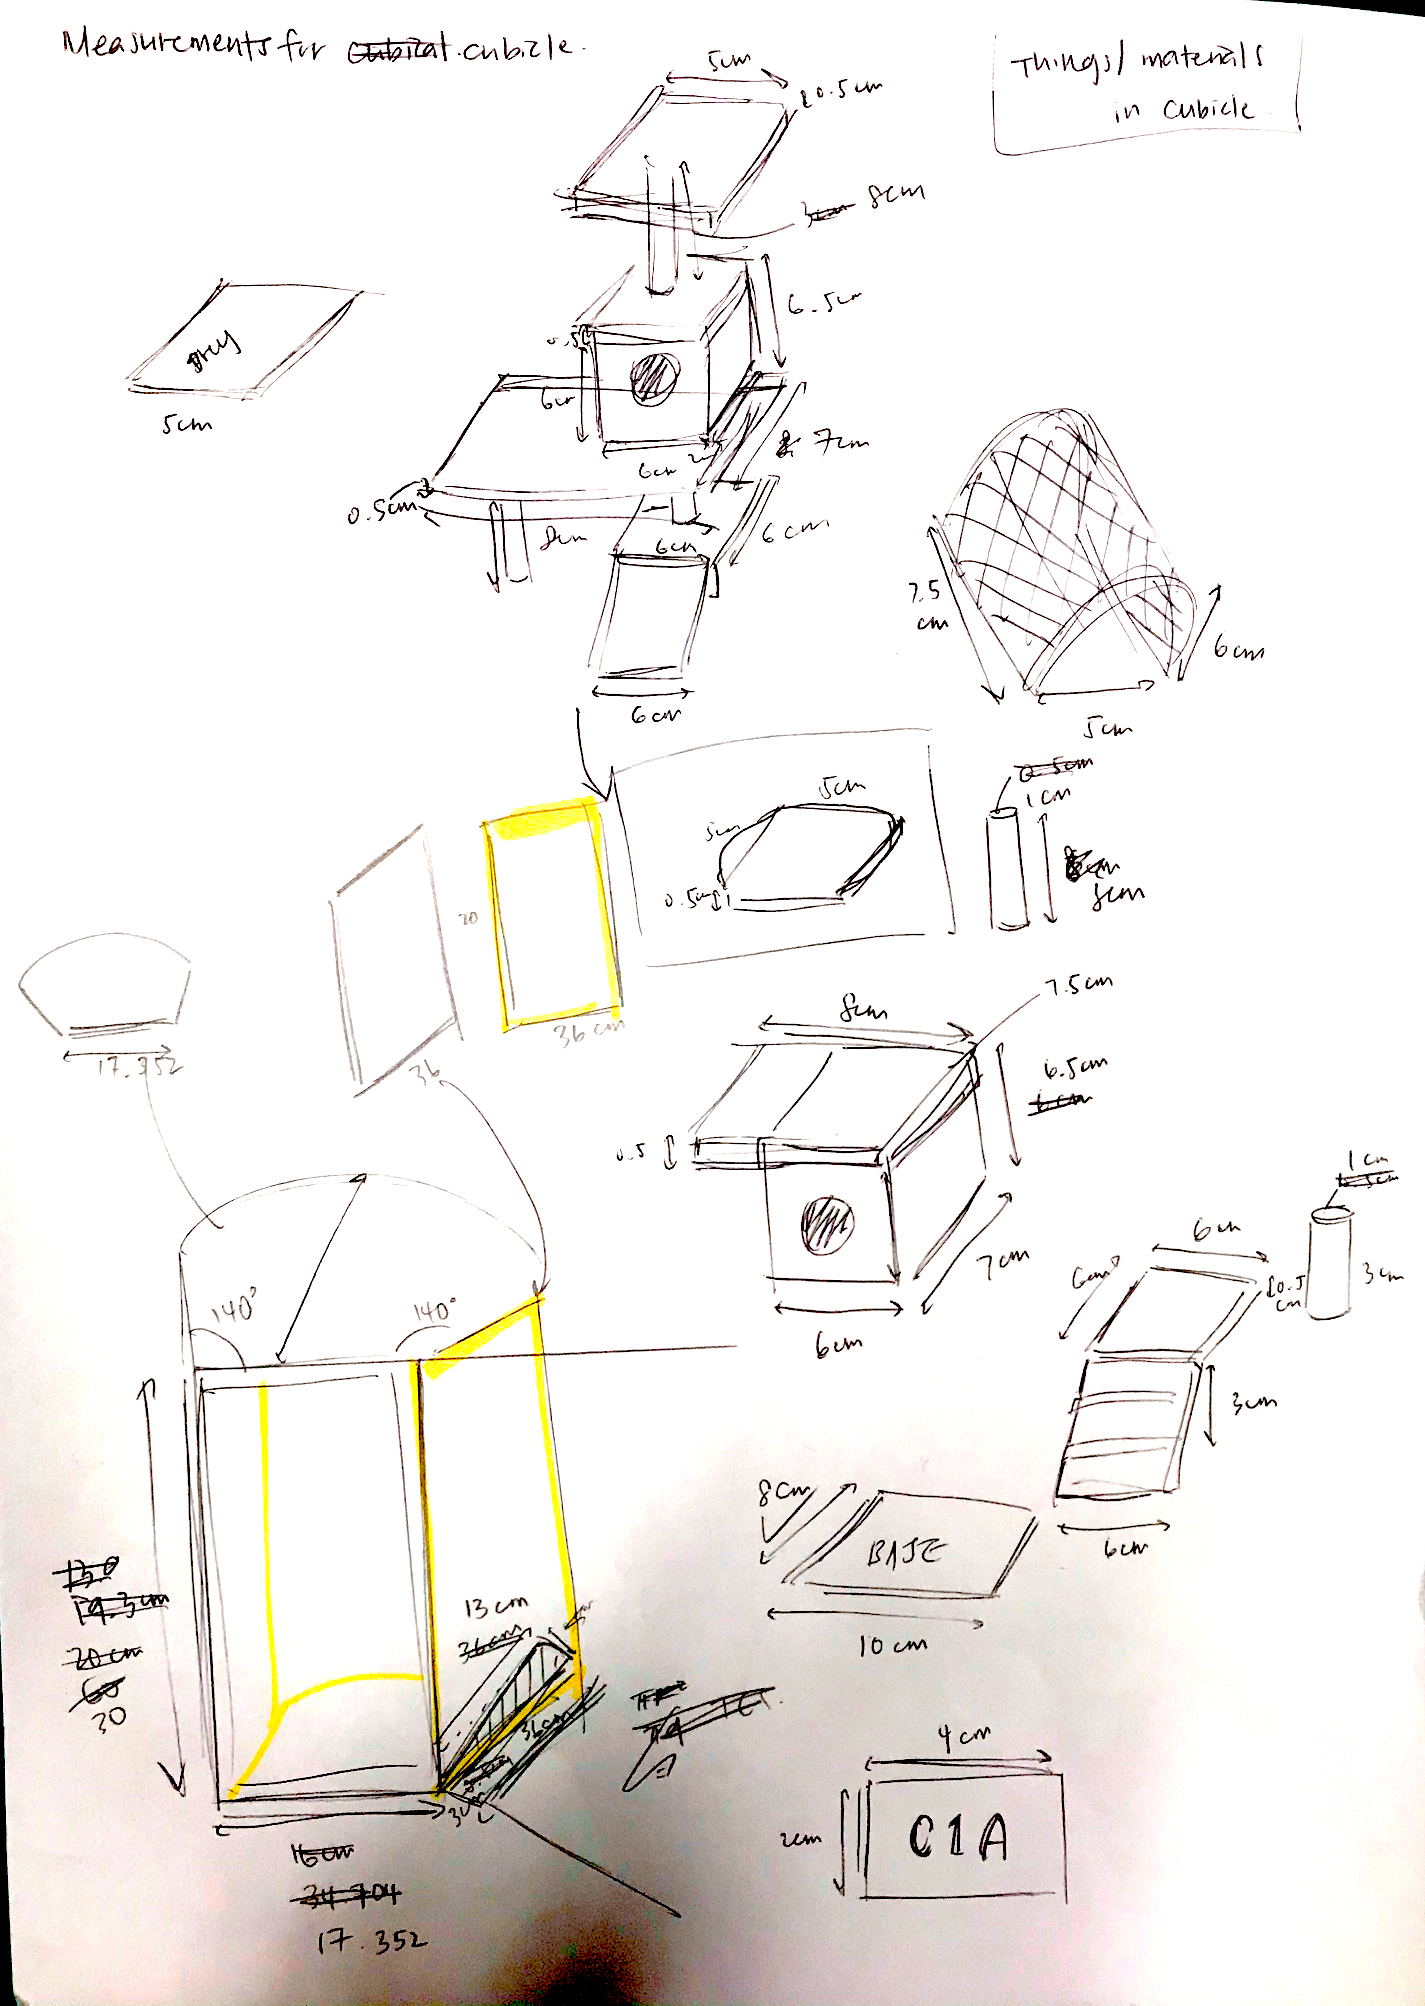 Measurements for cubicle.
Things/materials
in cubicle.
5cm
0.5cm
8cm
6.5cm
grey
5cm
0.5
6cm
6cm
7cm
0.5cm
8cm
6cm
6cm
6cm
7.5
cm
6cm
5cm
5cm
5cm
0.5cm
1cm
8cm
30
36cm
17.352
36
7.5cm
8cm
6.5cm
6cm
0.5
7cm
6cm
140°
140°
1cm
6cm
6cm
0.5
cm
3cm
3cm
6cm
8cm
BASE
10cm
13cm
36cm
36cm
3cm
19.3cm
20cm
60
30
16cm
34.704
17.352
4cm
2cm
C1A